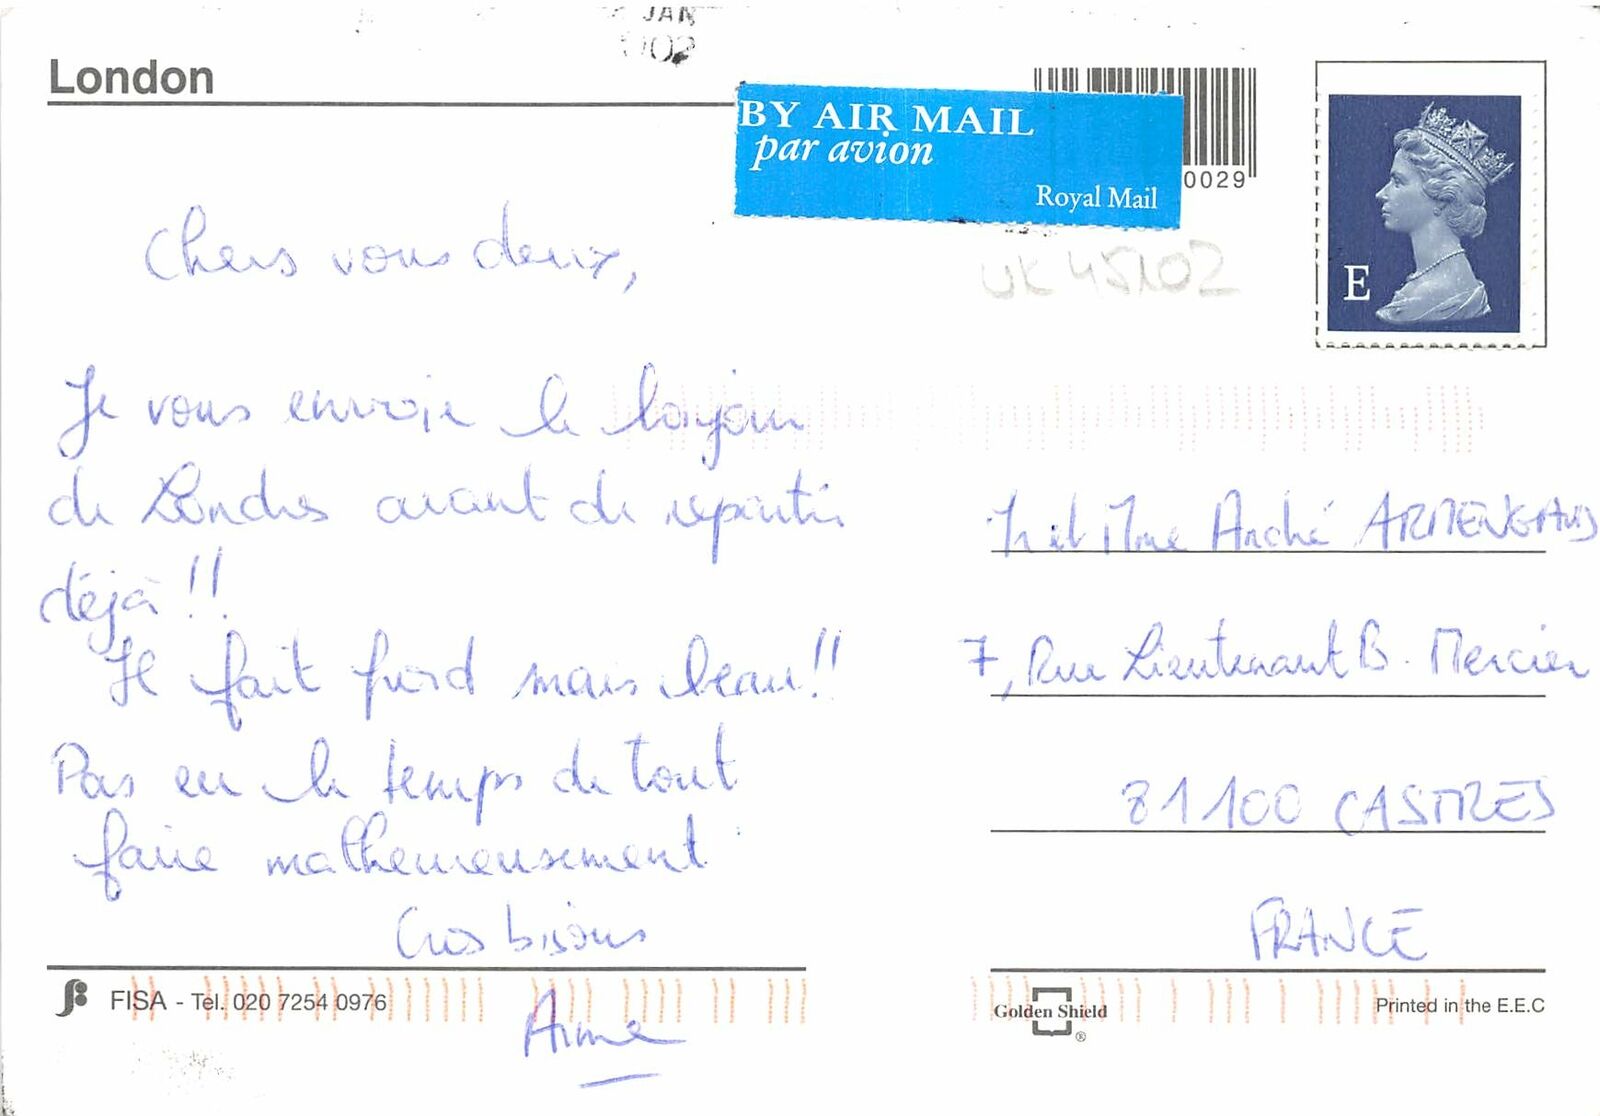 JAN
02
London
BY AIR MAIL
par avion
Royal Mail
0029
UK 45102
E
Chers vous deux,
Je vous envoie le bonjour
de Londres avant de repartir
déjà !!
Il fait froid mais beau !!
Pas eu le temps de tout
faire malheureusement
Gros bisous
M et Mme André ARMENGAUD
7, Rue Lieutenant B. Mercier
81100 CASTRES
FRANCE
FISA - Tel. 020 7254 0976
Golden Shield
®
Printed in the E.E.C